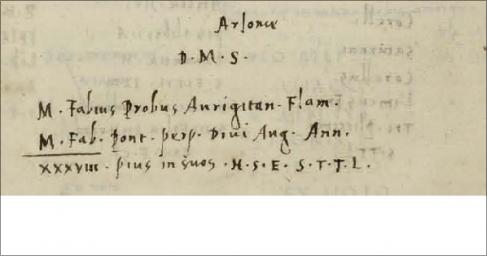 ArJone
D · M · S ·
M · Fabius Probus Aurigitan · Flam ·
M · Fab · Pont · perp · Divi Aug · Ann ·
XXXVIII · pius in suos · H · S · E · S · T · T · L ·